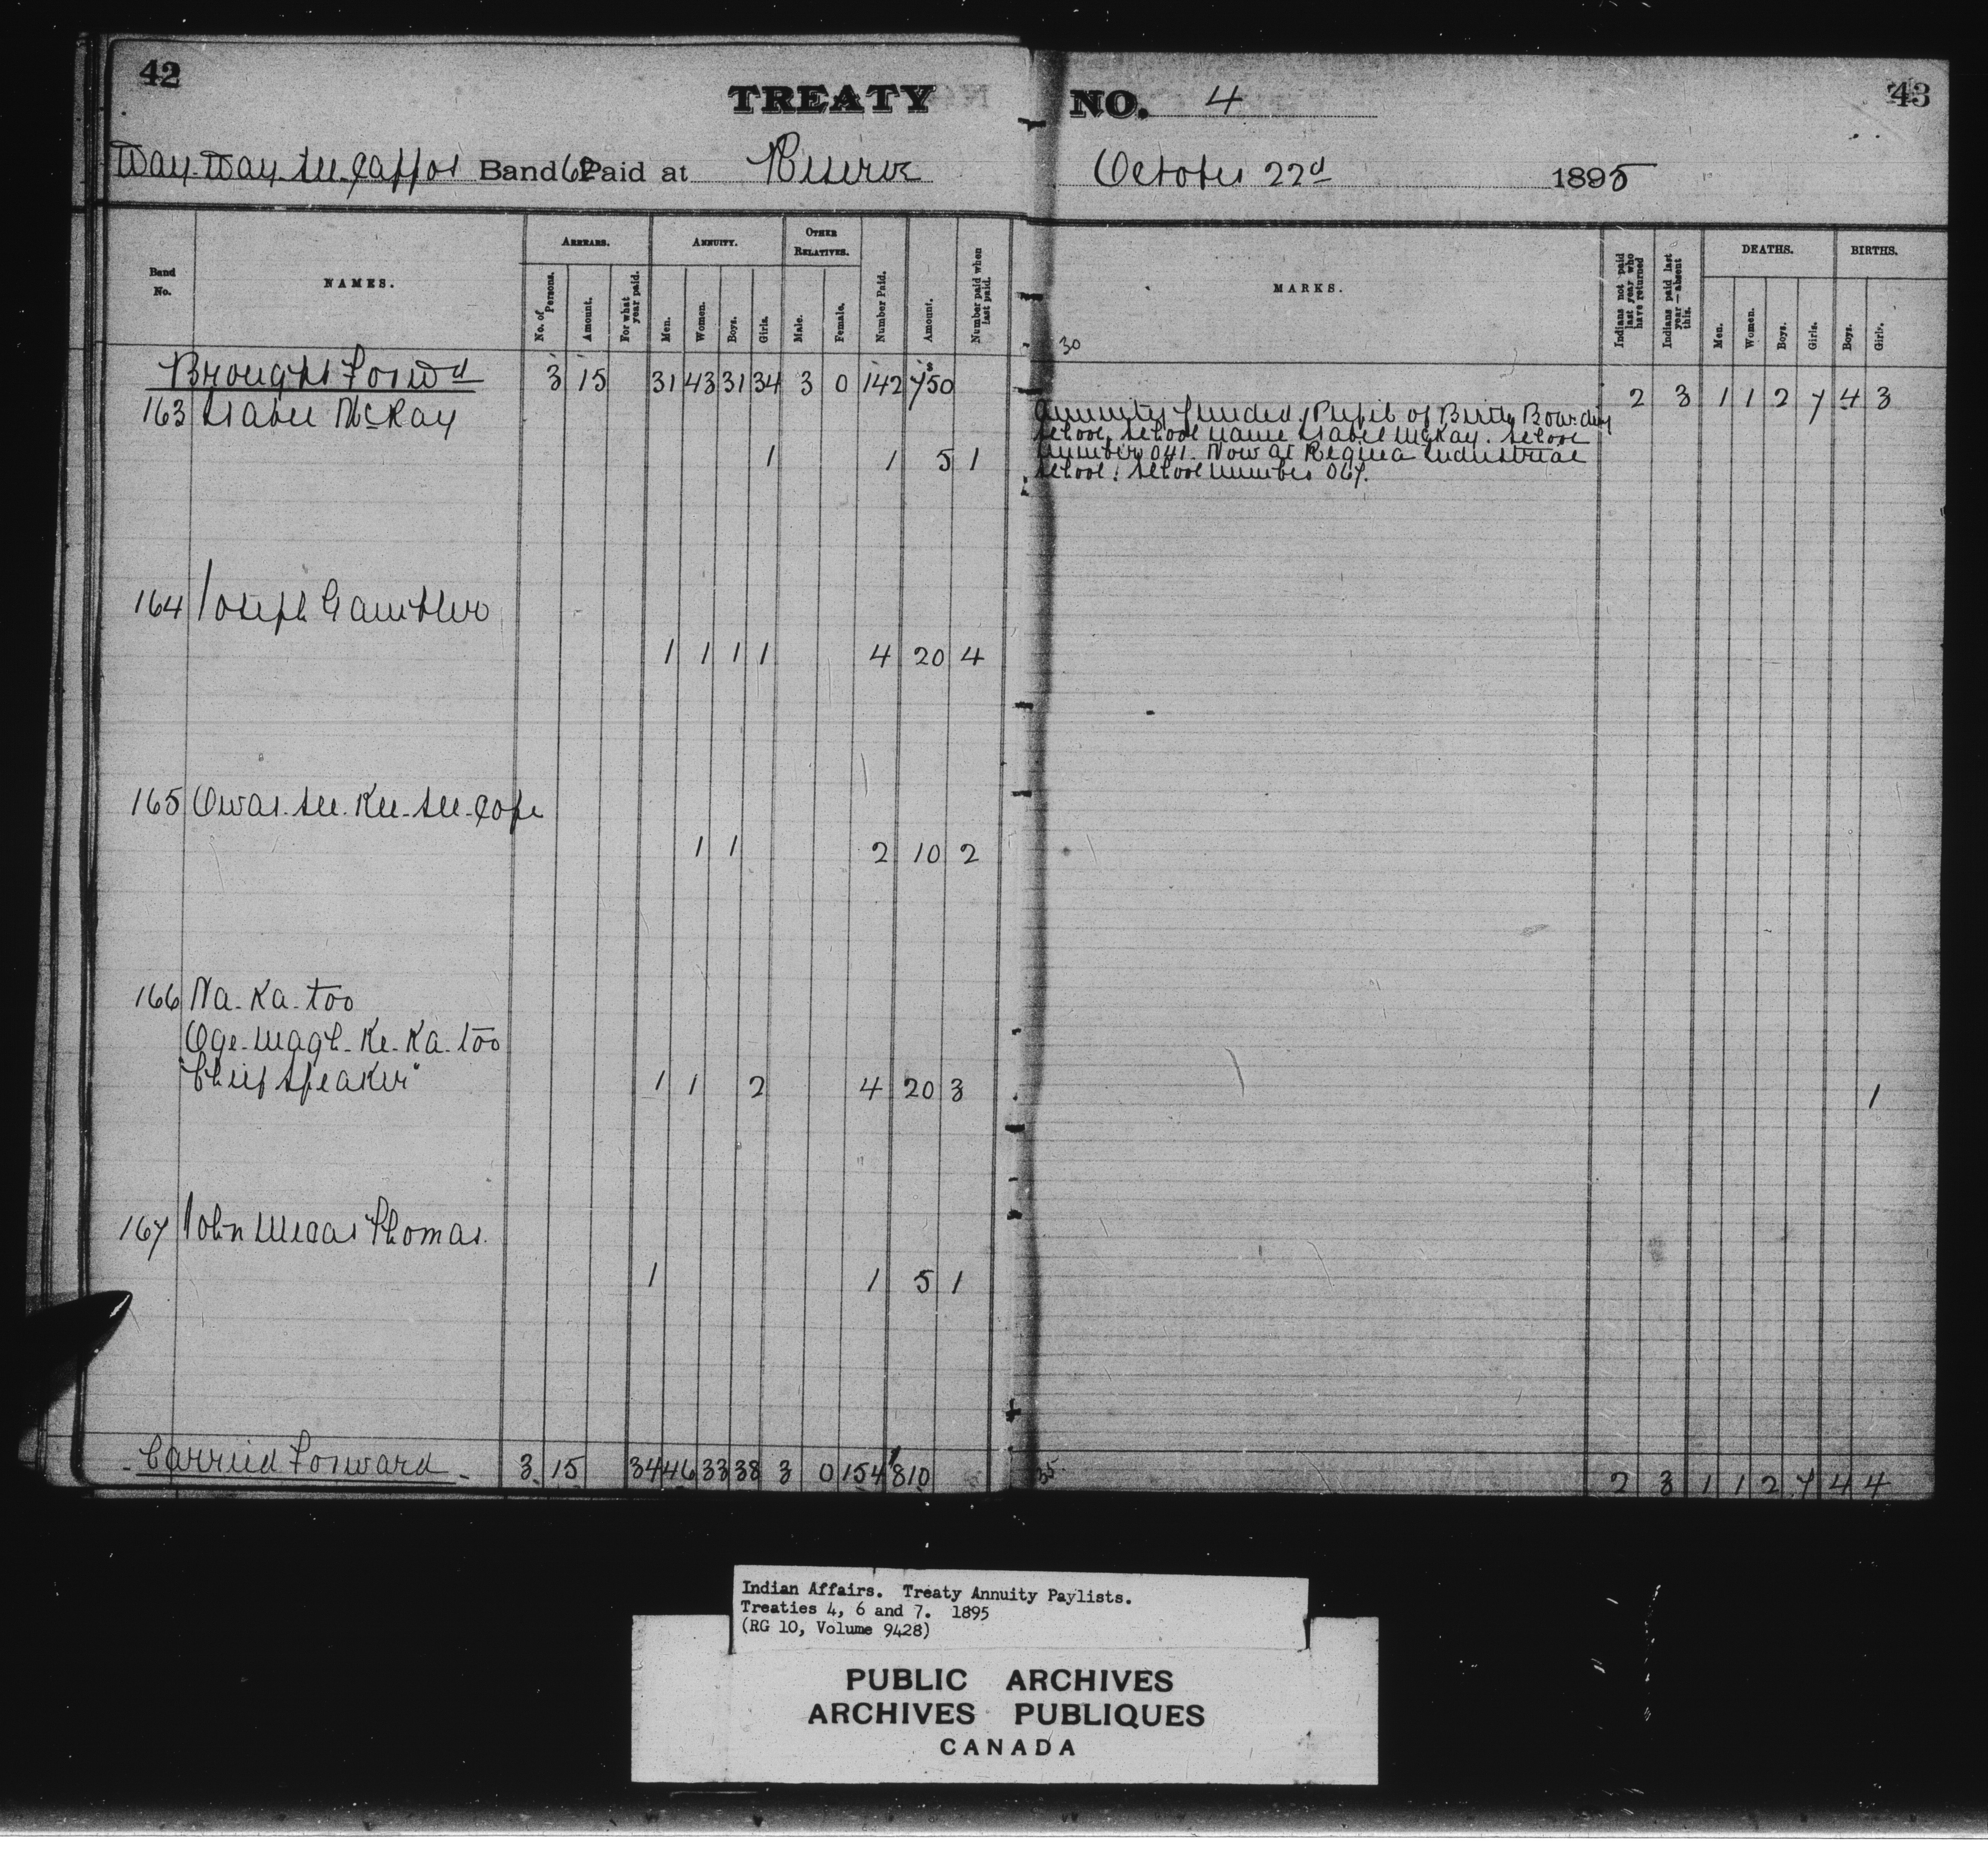 42
TREATY NO. 4
43
Way-Way-see-cappos Band 62 Paid at Reserve October 22d 1895
Band No. NAMES. ARREARS. ANNUITY. OTHER RELATIVES. Number Paid. Amount. Number paid when last paid. MARKS. Indians not paid last year who have returned Indians paid last year—absent this. DEATHS. BIRTHS.
No. of Persons. Amount. For what year paid. Men. Women. Boys. Girls. Male. Female. Men. Women. Boys. Girls. Boys. Girls.
30
Brought Forwd 3 15 31 43 31 34 3 0 142 $750 2 3 1 1 2 7 4 3
163 Isabel McKay
Annuity funded. Pupil of Birtle Boarding
School. School name Isabel McKay. School
1 1 5 1 number 041. Now at Regina Industrial
School. School number 067.
164 Joseph Gambler
1 1 1 1 4 20 4
165 Owas-see-Kee-see-cope
1 1 2 10 2
166 Na-Ka-too
Oge-magh-Ke-Ka-too
"Chief Speaker" 1 1 2 4 20 3 1
167 John Thomas.
1 1 5 1
Carried Forward 3 15 34 46 33 38 3 0 154 $810 35 2 3 1 1 2 7 4 4
Indian Affairs. Treaty Annuity Paylists.
Treaties 4, 6 and 7. 1895
(RG 10, Volume 9428)
PUBLIC ARCHIVES
ARCHIVES PUBLIQUES
CANADA